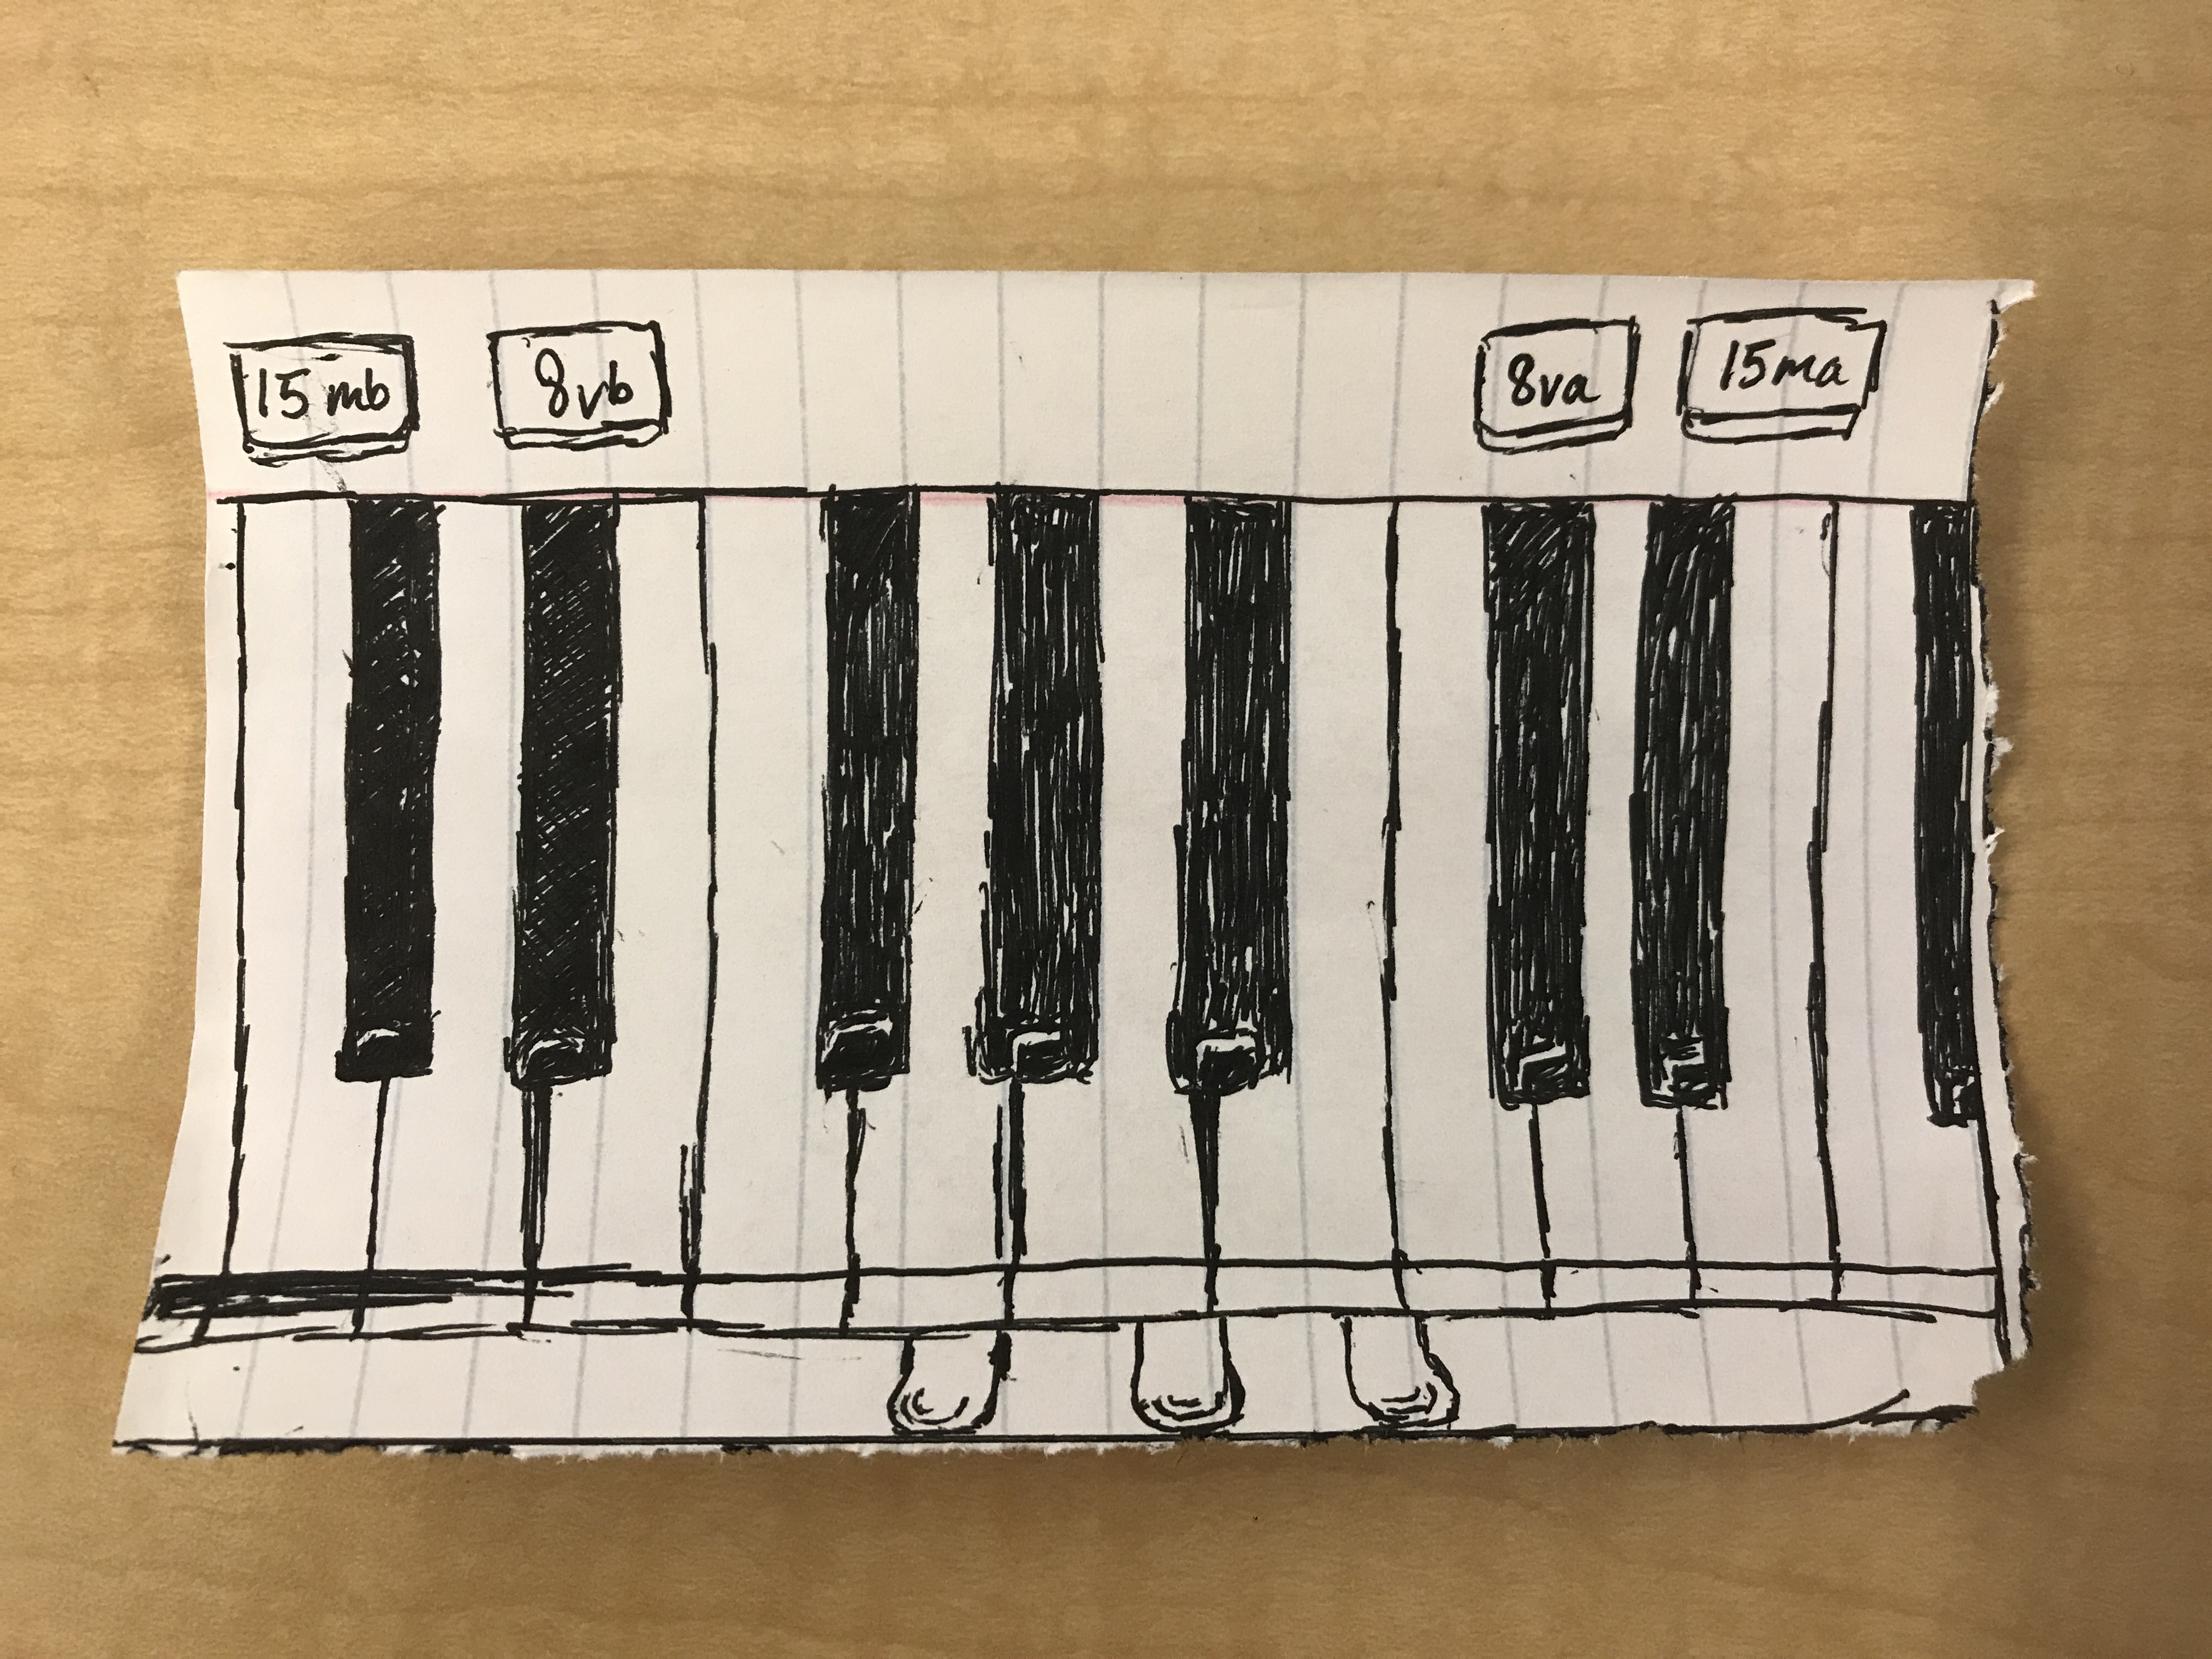 15 mb 8vb 8va 15ma